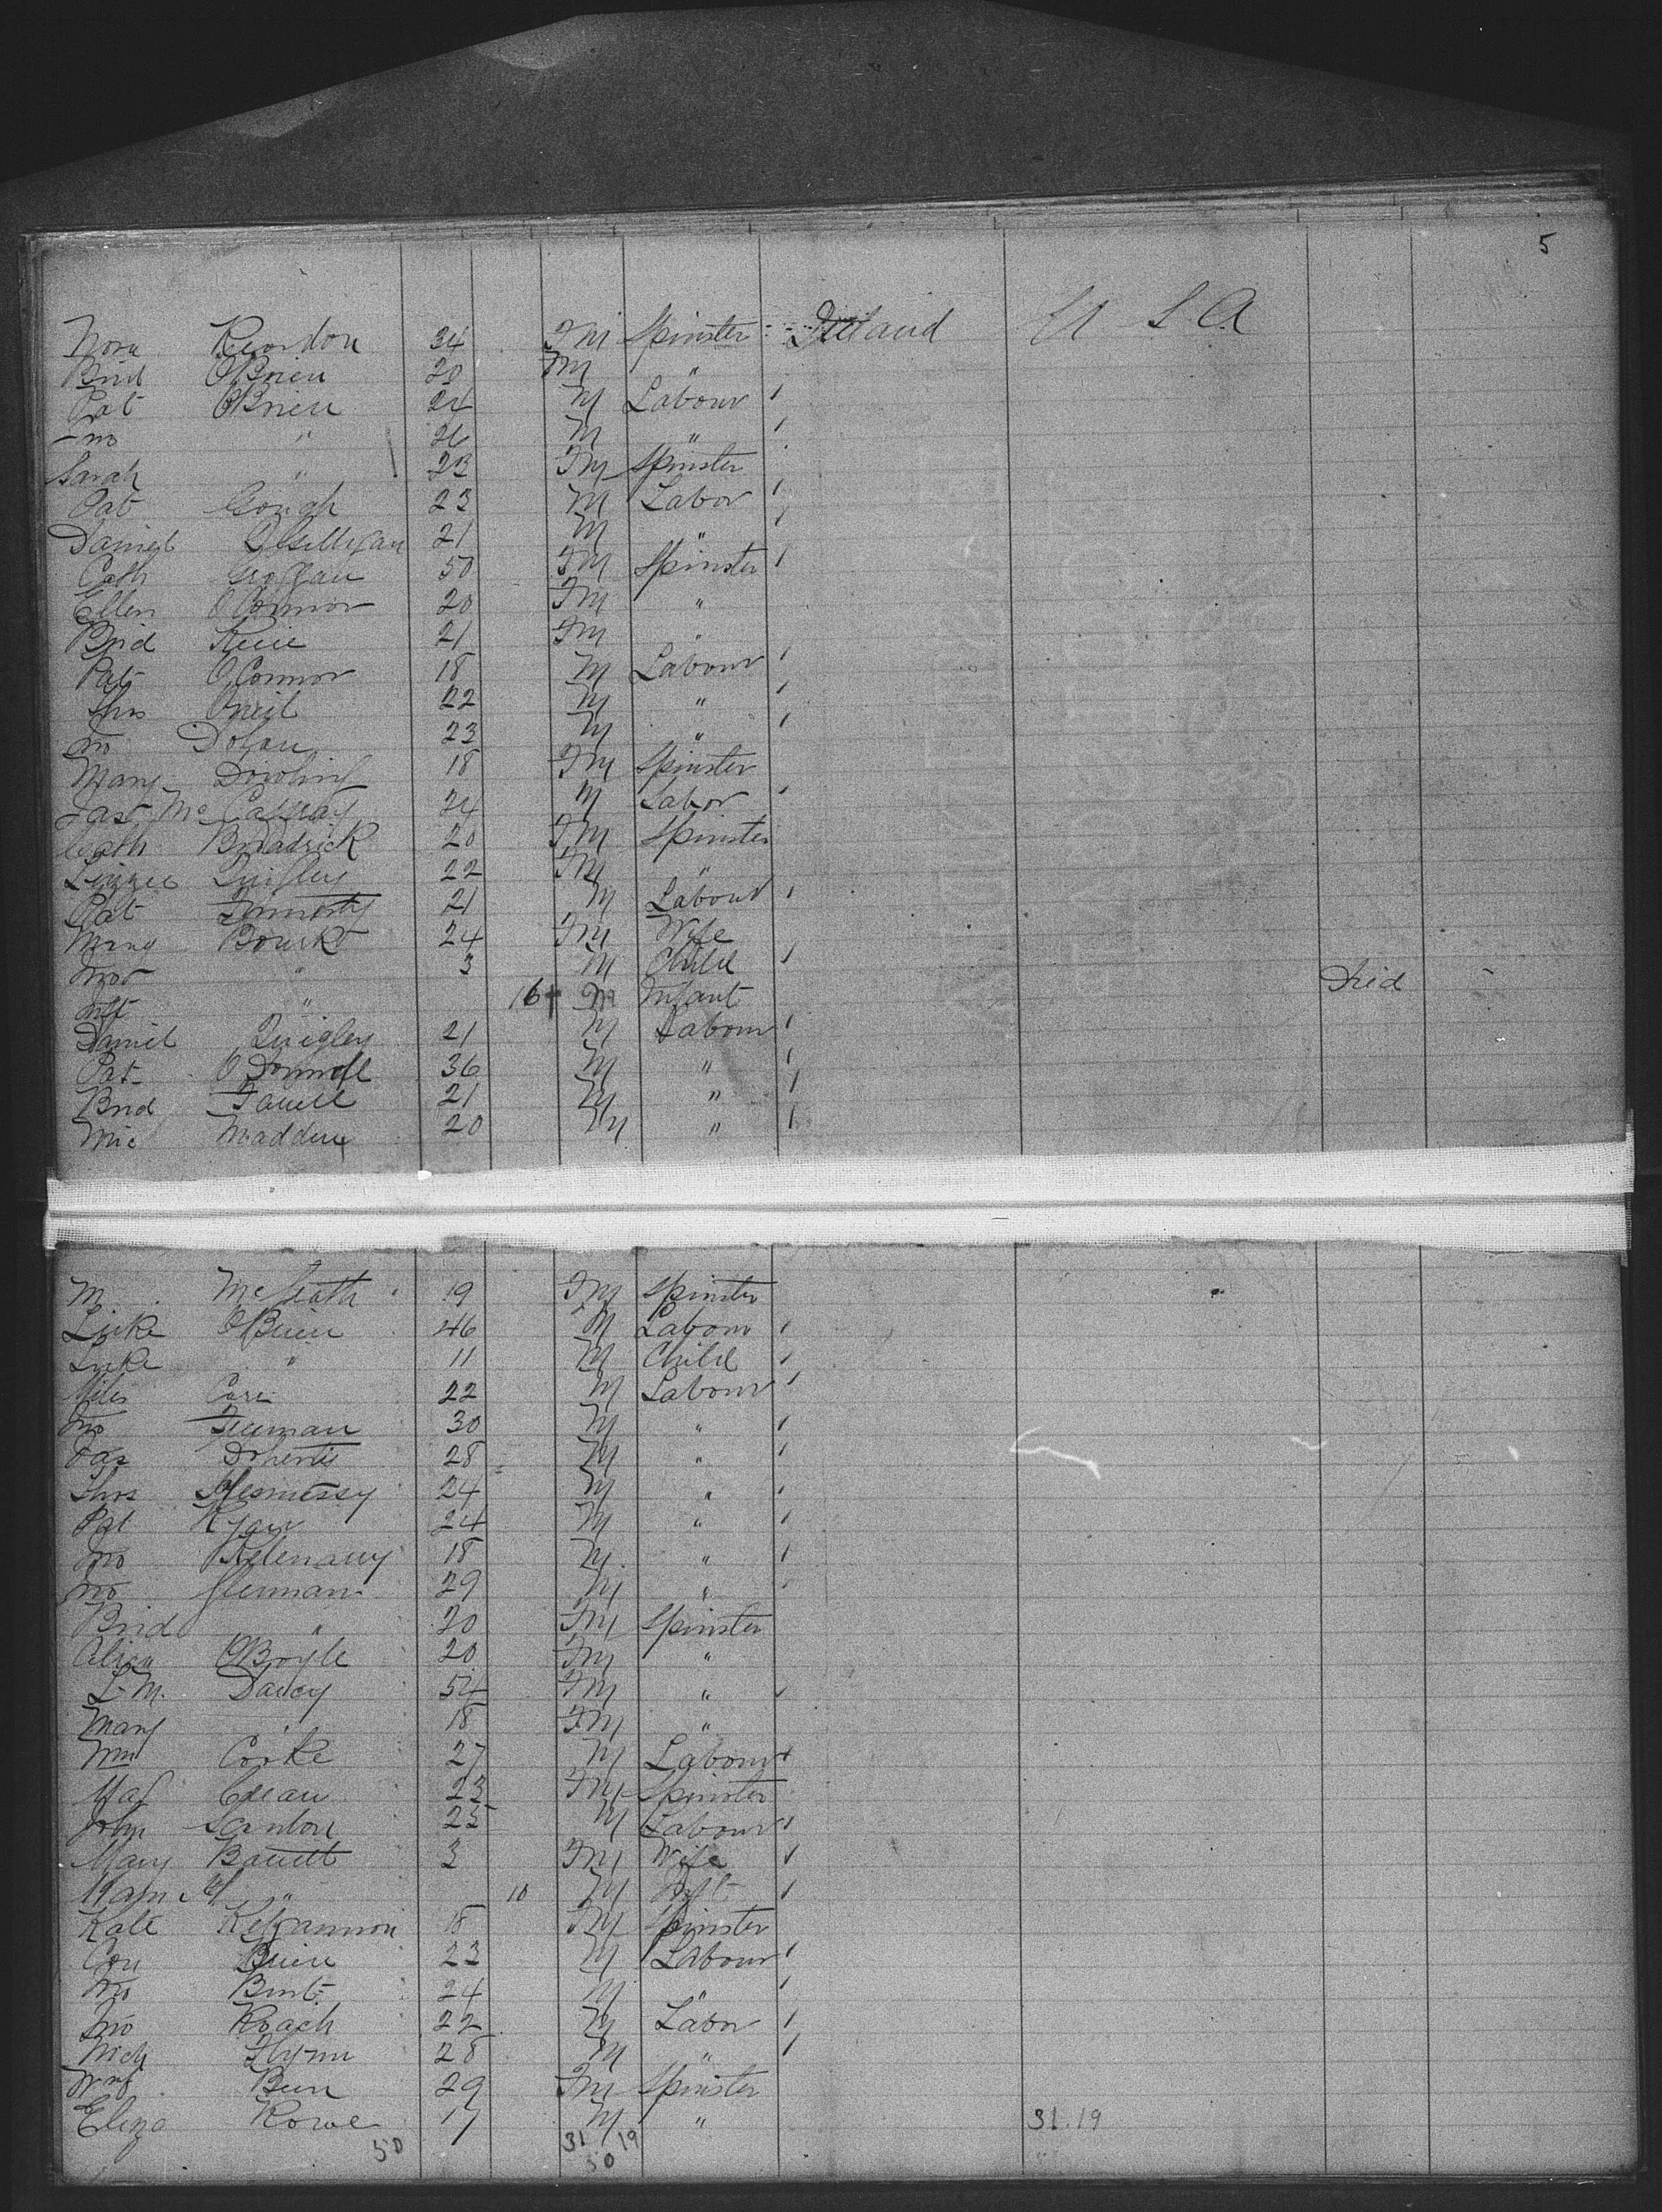 5
Nora Reordon 34 Fm Spinster Ireland U S A
Brid O'Brien 20 Fm "
Pat O'Brien 24 M Labour
Jno " 26 M "
Sarah " 23 Fm Spinster
Pat Gough 23 M Labor
Daniel 21 M "
Cath 50 Fm Spinster
Ellen O'Connor 20 Fm "
Brid 21 Fm "
Pat O'Connor 18 M Labour
Thos Oneil 22 M "
Jno Dolan 23 M "
Mary Dowling 18 Fm Spinster
Jas Mc 24 M Labor
Cath Broadrick 20 Fm Spinster
Lizzie Quigley 22 Fm "
Pat 21 M Labour
Mary Bourke 24 Fm Wife
" 3 M Child
Inft " M Infant Died
Daniel Quigley 21 M Labour
Pat O'Donnell 36 M "
Brid 21 M "
Mic Madden 20 M "
M McGrath 19 Fm Spinster
Luke O'Brien 46 M Labour
Luke " 11 M Child
Miles 22 M Labour
Jno 30 M "
Jas Doherty 28 M "
Thos Hennessy 24 M "
Pat Ryan 24 M "
Jno 18 M "
Jno Glennan 29 M "
Brid " 20 Fm Spinster
O'Boyle 20 Fm "
L. M. Darcy 54 Fm "
Mary " 18 Fm "
Wm Cooke 27 M Labour
23 Fm Spinster
John Scanlon 25 M Labour
Mary Barrett 3 Fm Wife
" 10 M Inft
Kate 18 Fm Spinster
Con Brien 23 M Labour
Jno 24 M "
Jno Roach 22 M Labor
Mich Flynn 28 M "
29 Fm Spinster
Eliza Rowe 17 M " 31.19
50 31 19
50